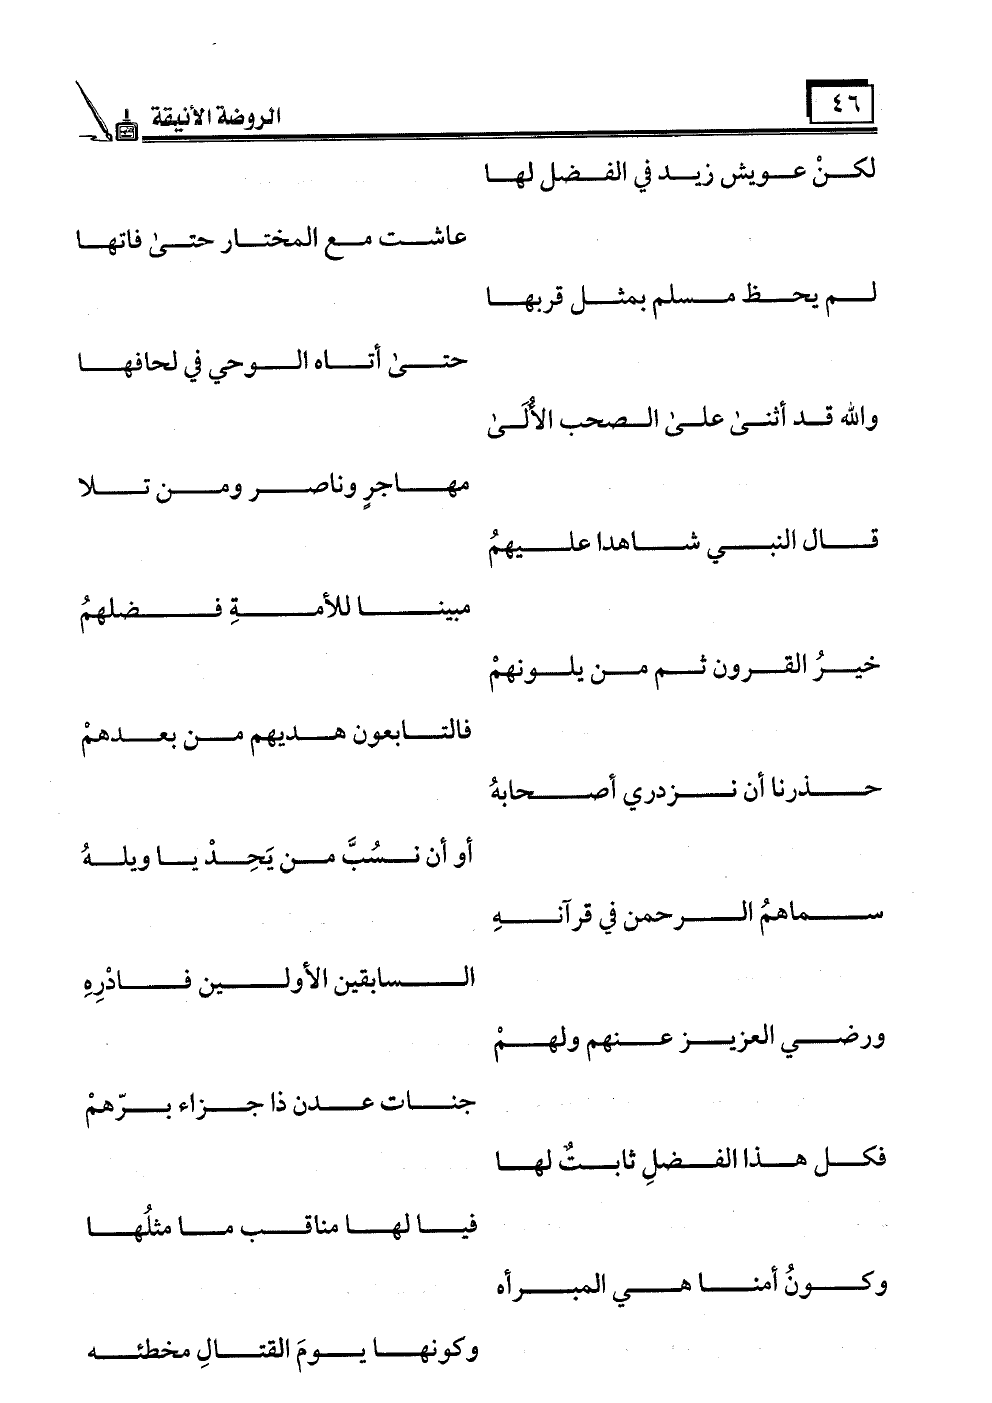 ٤٦
الروضة الأنيقة
لكنْ عويش زيد في الفضل لها
عاشت مع المختار حتىٰ فاتها
لم يحظ مسلم بمثل قربها
حتىٰ أتاه الوحي في لحافها
والله قد أثنىٰ علىٰ الصحب الأُلَىٰ
مهاجرٍ وناصر ومن تلا
قال النبي شاهدا عليهمُ
مبينا للأمةِ فضلهمُ
خيرُ القرون ثم من يلونهمْ
فالتابعون هديهم من بعدهمْ
حذرنا أن نزدري أصحابهُ
أو أن نسُبَّ من يَحِدْ يا ويلهُ
سماهمُ الرحمن في قرآنهِ
السابقين الأولين فادْرِهِ
ورضي العزيز عنهم ولهمْ
جنات عدن ذا جزاء برّهمْ
فكل هذا الفضلِ ثابتٌ لها
فيا لها مناقب ما مثلُها
وكونُ أمنا هي المبرأه
وكونها يومَ القتالِ مخطئه